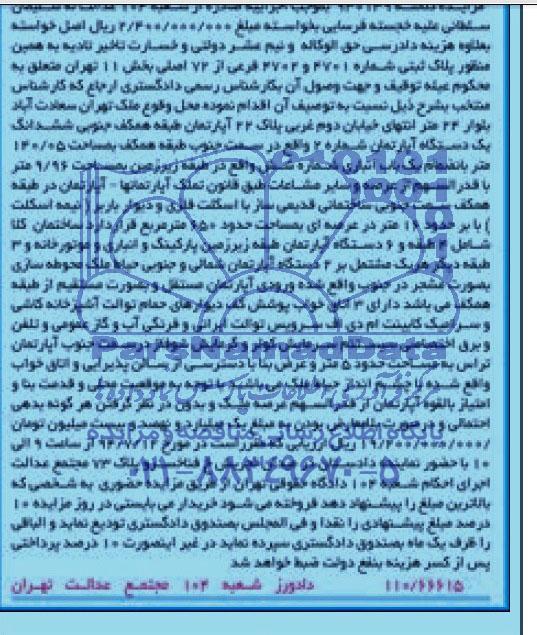 سلطانی علیه خجسته فرسایی بخواسته مبلغ ۲/۴۰۰/۰۰۰/۰۰۰ ریال اصل خواسته
بعلاوه هزینه دادرسی حق الوکاله و نیم عشر دولتی و خسارت تاخیر تادیه به همین
منظور پلاک ثبتی شماره ۴۷۰۱ و ۴۷۰۲ فرعی از ۷۲ اصلی بخش ۱۱ تهران متعلق به
محکوم علیه توقیف و جهت وصول آن بکارشناس رسمی دادگستری ارجاع که کارشناس
منتخب بشرح ذیل نسبت به توصیف آن اقدام نموده محل وقوع ملک تهران سعادت آباد
بلوار ۲۴ متر انتهای خیابان دوم غربی پلاک ۲۲ آپارتمان طبقه همکف جنوبی ششدانگ
یک دستگاه آپارتمان شماره ۲ واقع در سمت جنوب طبقه همکف بمساحت ۱۴۰/۰۵
متر بانضمام یک باب انباری شماره شش واقع در طبقه زیرزمین بمساحت ۹/۹۶ متر
با قدرالسهم از عرصه و سایر مشاعات طبق قانون تملک آپارتمانها - آپارتمان در طبقه
همکف سمت جنوبی ساختمانی قدیمی ساز با اسکلت فلزی و دیوار باربر ( نیمه اسکلت
) با بر حدود ۱۶ متر در عرصه ای بمساحت حدود ۶۵۰ مترمربع قرار دارد ساختمان کلا
شامل ۴ طبقه و ۶ دستگاه آپارتمان طبقه زیرزمین پارکینگ و انباری و موتورخانه و ۳
طبقه دیگر هر یک مشتمل بر ۲ دستگاه آپارتمان شمالی و جنوبی حیاط ملک محوطه سازی
بصورت مشجر در جنوب واقع شده ورودی آپارتمان مستقل و بصورت مستقیم از طبقه
همکف می باشد دارای ۳ اتاق خواب پوشش کف دیوارهای حمام توالت آشپزخانه کاشی
و سرامیک کابینت ام دی اف سرویس توالت ایرانی و فرنگی آب و گاز عمومی و تلفن
و برق اختصاصی سیستم سرمایش کولر و گرمایش شوفاژ در سمت جنوب آپارتمان
تراس به مساحت حدود ۵ متر و عرض بنا با دسترسی از سالن پذیرایی و اتاق خواب
واقع شده با چشم انداز حیاط ملک می باشد با توجه به موقعیت محلی و قدمت بنا و
امتیاز بالقوه آپارتمان از قدرالسهم عرصه ملک و بدون در نظر گرفتن هر گونه بدهی
احتمالی و در صورت بلامعارض بودن به مبلغ یک میلیارد و نهصد و بیست میلیون تومان
۱۹/۲۰۰/۰۰۰/۰۰۰ ریال ارزیابی که مقرر است در مورخ ۹۴/۷/۱۲ از ساعت ۹ الی
۱۰ با حضور نماینده دادسرا پلاک ۷۳ مجتمع عدالت
اجرای احکام شعبه ۱۰۴ دادگاه حقوقی تهران از طریق مزایده حضوری به شخصی که
بالاترین مبلغ را پیشنهاد دهد فروخته می شود خریدار می بایستی در روز مزایده ۱۰
درصد مبلغ پیشنهادی را نقدا و فی المجلس بصندوق دادگستری تودیع نماید و الباقی
را ظرف یک ماه بصندوق دادگستری سپرده نماید در غیر اینصورت ۱۰ درصد پرداختی
پس از کسر هزینه بنفع دولت ضبط خواهد شد
۱۱۰/۶۶۶۱۵ دادورز شعبه ۱۰۴ مجتمع عدالت تهران
ParsNamadData
۰۲۱-۸۸۳۴۹۶۷۰-۵